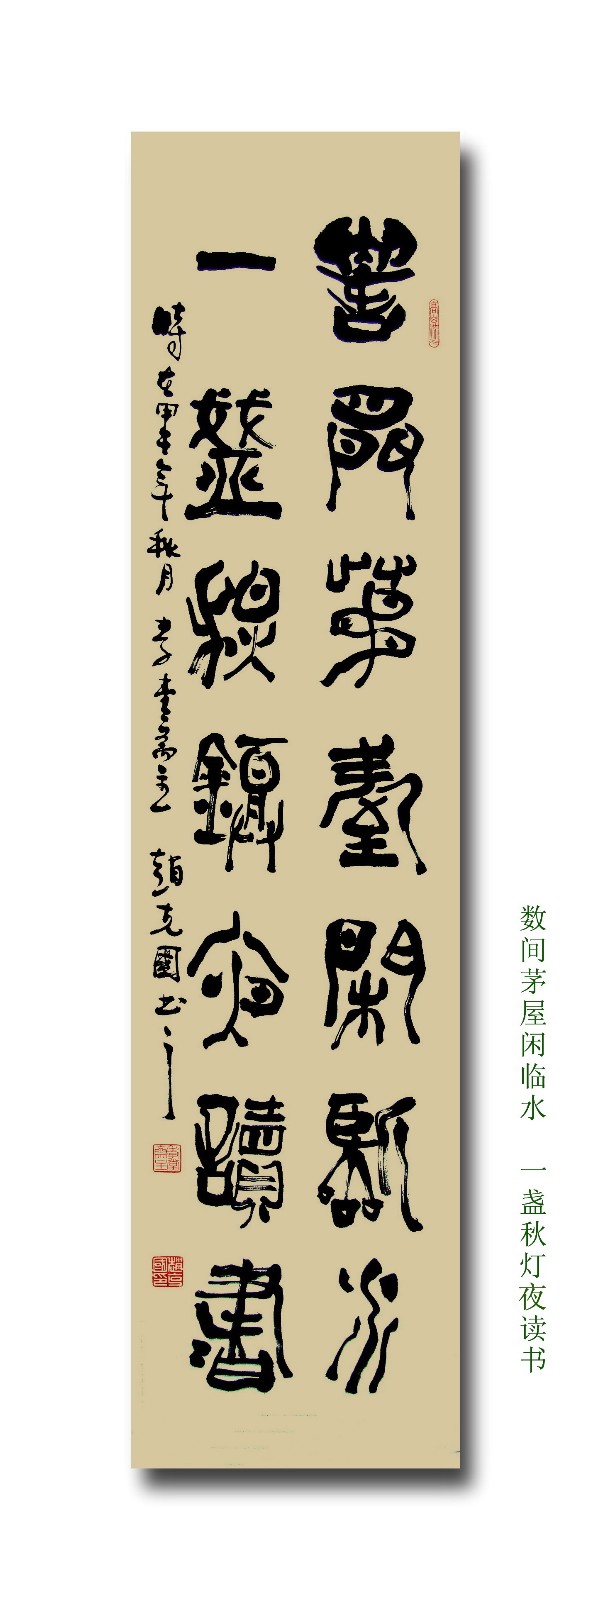 數閒茅屋閑臨水
一盞秋鐙夜讀書
時在甲午年秋月 齋主 趙克國書
数间茅屋闲临水 一盏秋灯夜读书